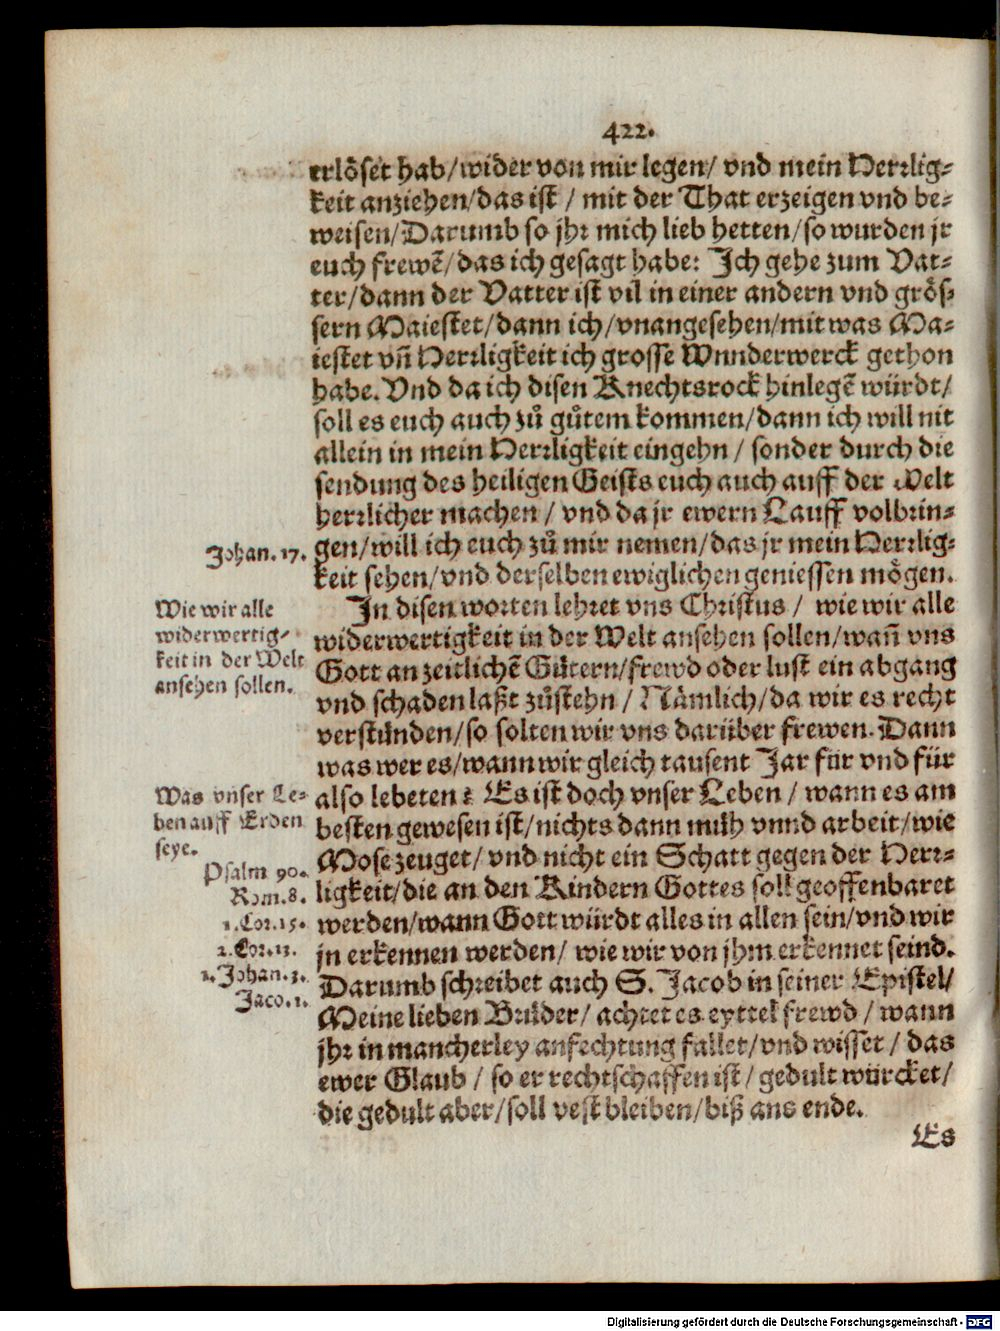 422.
erlöset hab/wider von mir legen/ vnd mein Herrlig-
keit anziehen/das ist / mit der That erzeigen vnd be-
weisen/Darumb so jhr mich lieb hetten/so wurden jr
euch frewē/das ich gesagt habe: Ich gehe zum Vat-
ter/dann der Vatter ist vil in einer andern vnd grös-
sern Maiestet/dann ich/vnangesehen/mit was Ma-
iestet vn̄ Herrligkeit ich grosse Wunderwerck gethon
habe. Vnd da ich disen Knechtsrock hinlegē würdt/
soll es euch auch zů gůtem kommen/dann ich will nit
allein in mein Herrligkeit eingehn / sonder durch die
sendung des heiligen Geists euch auch auff der Welt
herrlicher machen / vnd da jr ewern Lauff volbrin-
Johan. 17.
gen/will ich euch zů mir nemen/das jr mein Herrlig-
keit sehen/vnd derselben ewiglichen geniessen mögen.
Wie wir alle
widerwertig-
keit in der Welt
ansehen sollen.
In disen worten lehret vns Christus / wie wir alle
widerwertigkeit in der Welt ansehen sollen/wan̄ vns
Gott an zeitlichē Gütern/frewd oder lust ein abgang
vnd schaden laßt zůstehn / Nämlich/da wir es recht
verstünden/so solten wir vns darüber frewen. Dann
was wer es/wann wir gleich tausent Jar für vnd für
Was vnser Le-
ben auff Erden
seye.
also lebeten? Es ist doch vnser Leben / wann es am
besten gewesen ist/nichts dann müh vnnd arbeit/wie
Psalm 90.
Rom. 8.
1. Cor. 15.
2. Cor. 13.
1. Johan. 3.
Jaco. 1.
Mose zeuget/ vnd nicht ein Schatt gegen der Herr-
ligkeit/die an den Kindern Gottes soll geoffenbaret
werden/wann Gott würdt alles in allen sein/vnd wir
jn erkennen werden/ wie wir von jhm erkennet seind.
Darumb schreibet auch S. Jacob in seiner Epistel/
Meine lieben Brüder/ achtet es eyttel frewd / wann
jhr in mancherley anfechtung fallet/vnd wisset / das
ewer Glaub / so er rechtschaffen ist / gedult würcket/
die gedult aber/soll vest bleiben/biß ans ende.
Es
Digitalisierung gefördert durch die Deutsche Forschungsgemeinschaft - DFG